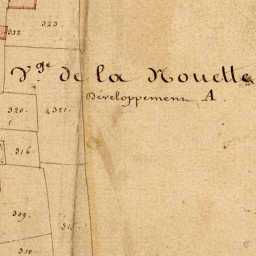 323
332
Vge de la Nouelle
Développement A
320
4321
316
309
310